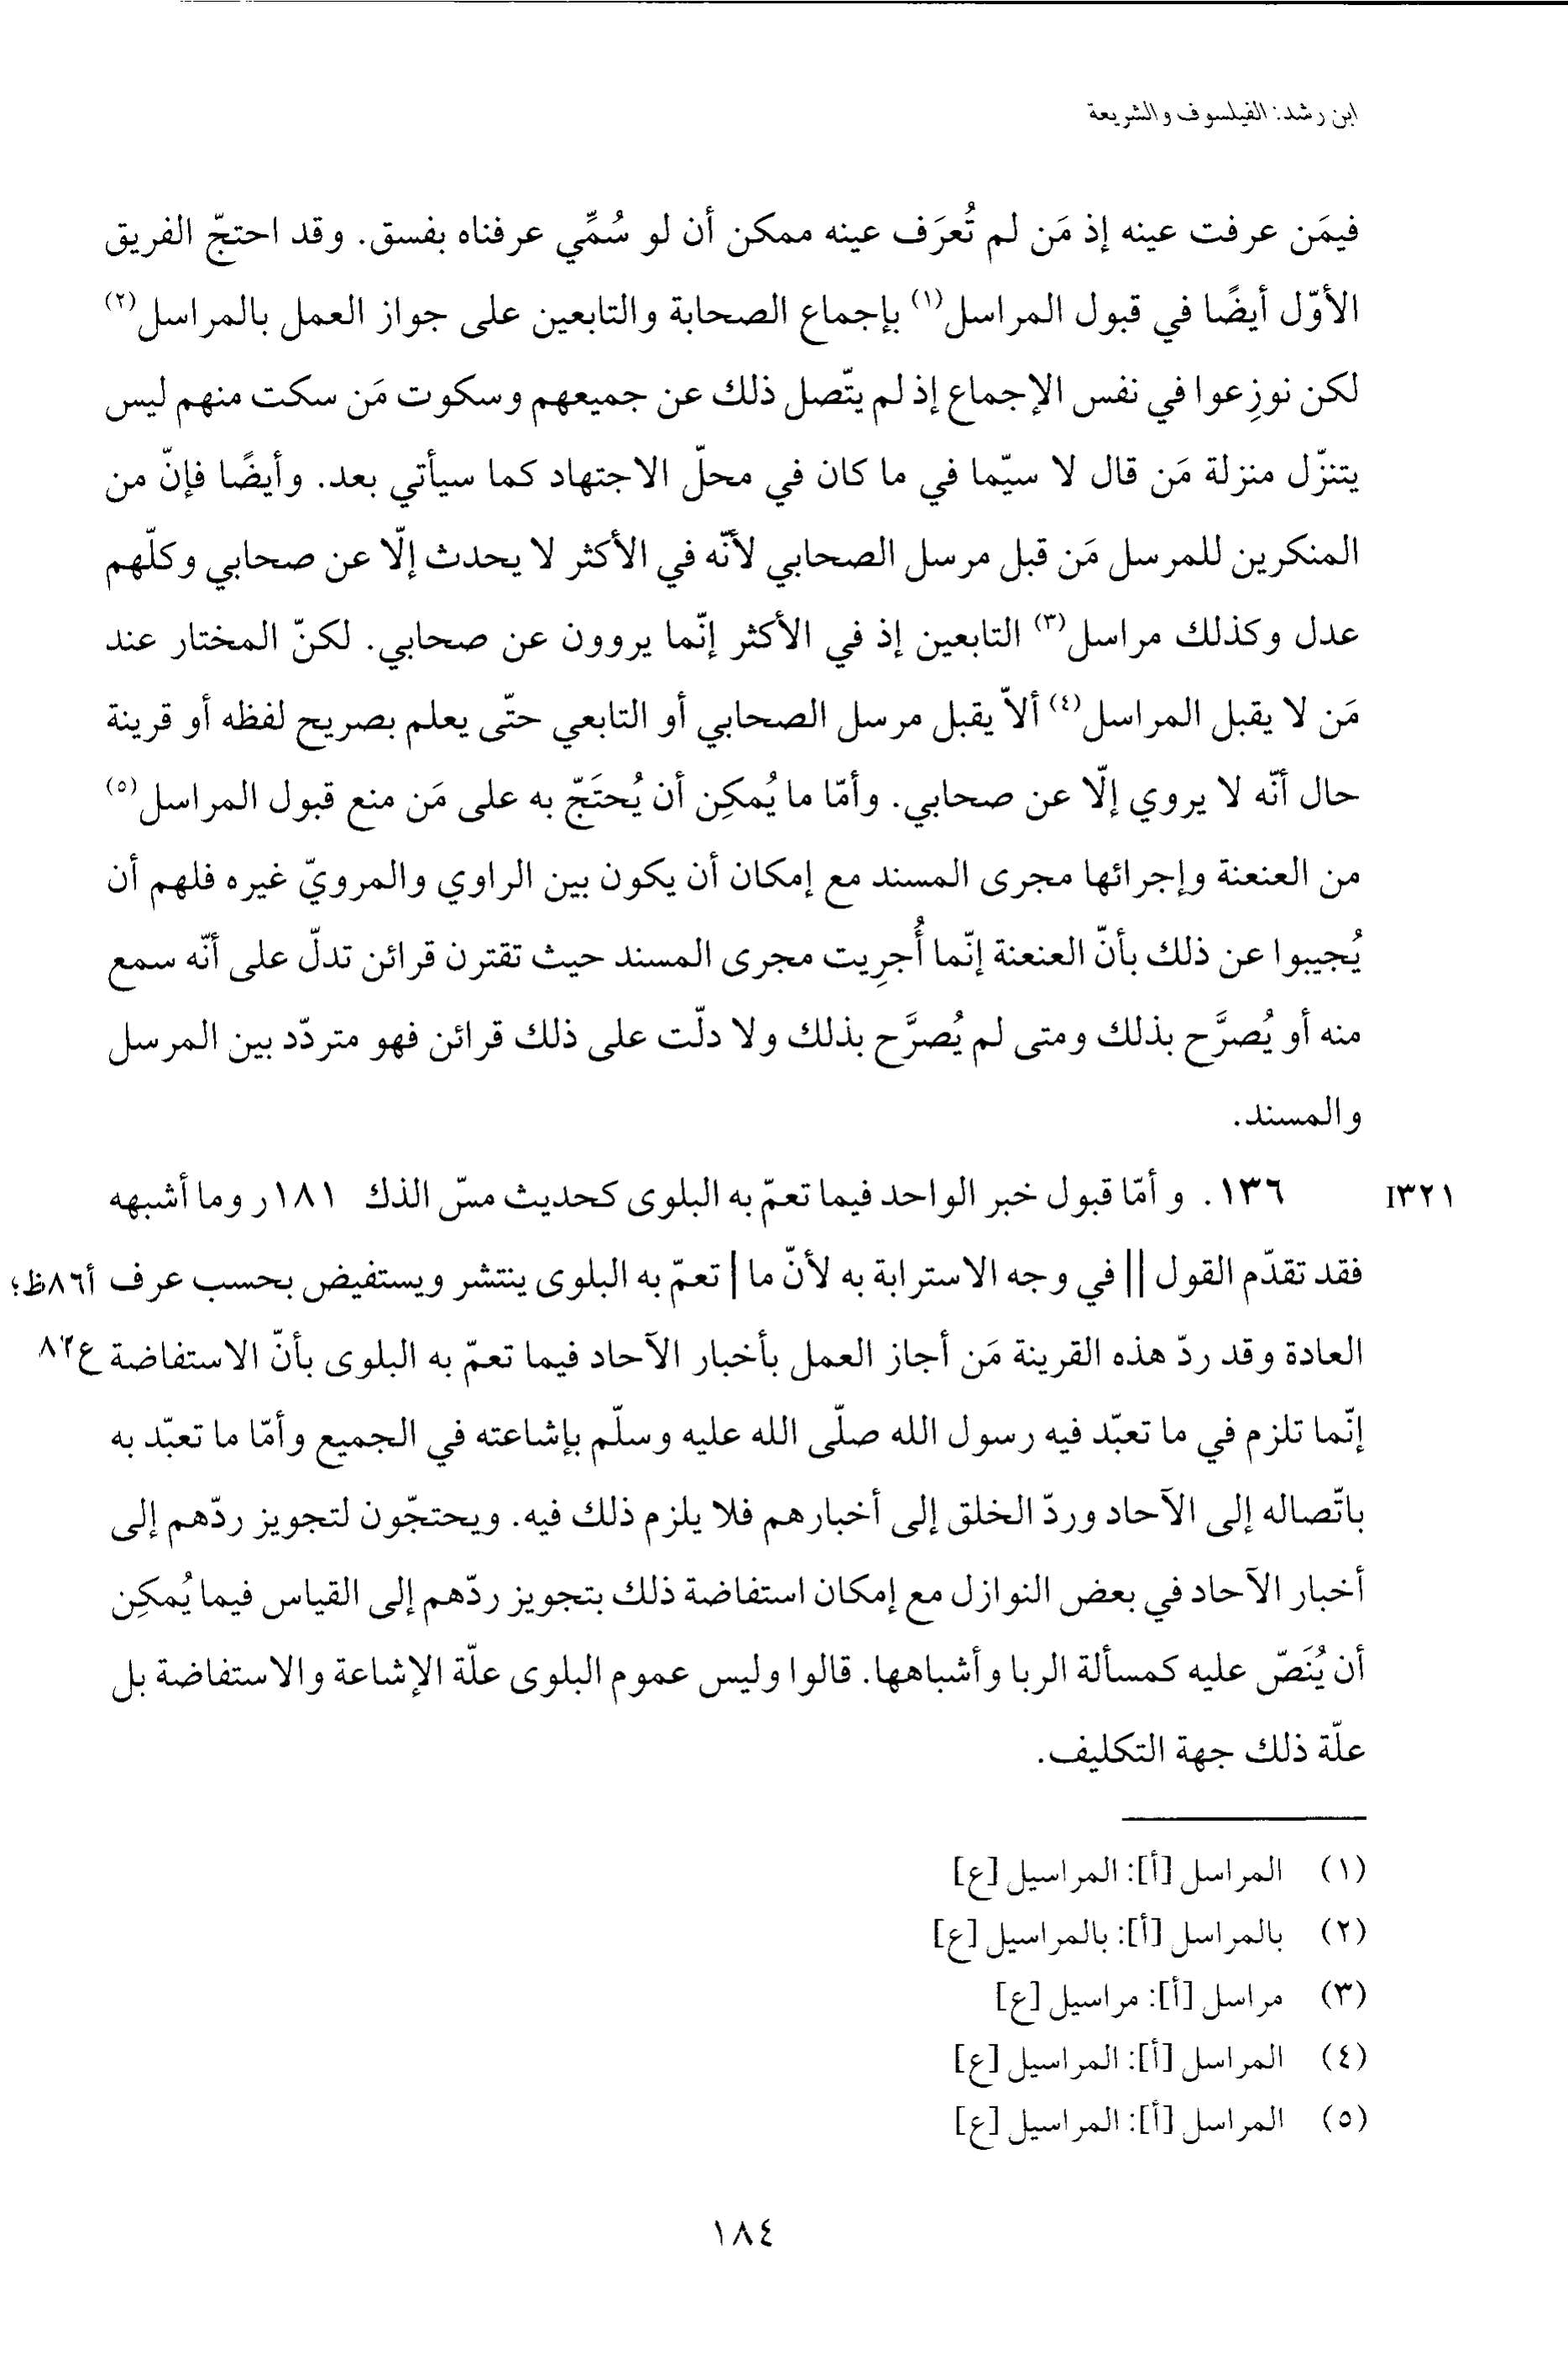 ابن رشد: الفيلسوف والشريعة
فيمَن عرفت عينه إذ مَن لم تُعرَف عينه ممكن أن لو سُمِّي عرفناه بفسق. وقد احتجّ الفريق
الأوّل أيضًا في قبول المراسل(١) بإجماع الصحابة والتابعين على جواز العمل بالمراسل(٢)
لكن نوزِعوا في نفس الإجماع إذ لم يتّصل ذلك عن جميعهم وسكوت مَن سكت منهم ليس
يتنزّل منزلة مَن قال لا سيّما في ما كان في محلّ الاجتهاد كما سيأتي بعد. وأيضًا فإنّ من
المنكرين للمرسل مَن قبل مرسل الصحابي لأنّه في الأكثر لا يحدث إلّا عن صحابي وكلّهم
عدل وكذلك مراسل(٣) التابعين إذ في الأكثر إنّما يروون عن صحابي. لكنّ المختار عند
مَن لا يقبل المراسل(٤) ألاّ يقبل مرسل الصحابي أو التابعي حتّى يعلم بصريح لفظه أو قرينة
حال أنّه لا يروي إلّا عن صحابي. وأمّا ما يُمكِن أن يُحتَجّ به على مَن منع قبول المراسل(٥)
من العنعنة وإجرائها مجرى المسند مع إمكان أن يكون بين الراوي والمرويّ غيره فلهم أن
يُجيبوا عن ذلك بأنّ العنعنة إنّما أُجرِيت مجرى المسند حيث تقترن قرائن تدلّ على أنّه سمع
منه أو يُصرَّح بذلك ومتى لم يُصرَّح بذلك ولا دلّت على ذلك قرائن فهو متردّد بين المرسل
والمسند.
I٣٢١ ١٣٦. و أمّا قبول خبر الواحد فيما تعمّ به البلوى كحديث مسّ الذك ١٨١ر وما أشبهه
فقد تقدّم القول || في وجه الاسترابة به لأنّ ما | تعمّ به البلوى ينتشر ويستفيض بحسب عرف أ٨٦ظ؛
العادة وقد ردّ هذه القرينة مَن أجاز العمل بأخبار الآحاد فيما تعمّ به البلوى بأنّ الاستفاضة ع٨٢
إنّما تلزم في ما تعبّد فيه رسول الله صلّى الله عليه وسلّم بإشاعته في الجميع وأمّا ما تعبّد به
باتّصاله إلى الآحاد وردّ الخلق إلى أخبارهم فلا يلزم ذلك فيه. ويحتجّون لتجويز ردّهم إلى
أخبار الآحاد في بعض النوازل مع إمكان استفاضة ذلك بتجويز ردّهم إلى القياس فيما يُمكِن
أن يُنَصّ عليه كمسألة الربا وأشباهها. قالوا وليس عموم البلوى علّة الإشاعة والاستفاضة بل
علّة ذلك جهة التكليف.
(١) المراسل [أ]: المراسيل [ع]
(٢) بالمراسل [أ]: بالمراسيل [ع]
(٣) مراسل [أ]: مراسيل [ع]
(٤) المراسل [أ]: المراسيل [ع]
(٥) المراسل [أ]: المراسيل [ع]
١٨٤